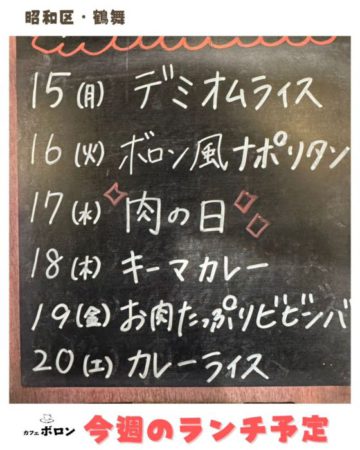 昭和区・鶴舞
15(月) デミオムライス
16(火) ボロン風ナポリタン
17(水) 肉の日
18(木) キーマカレー
19(金) お肉たっぷりビビンバ
20(土) カレーライス
カフェ ボロン 今週のランチ予定